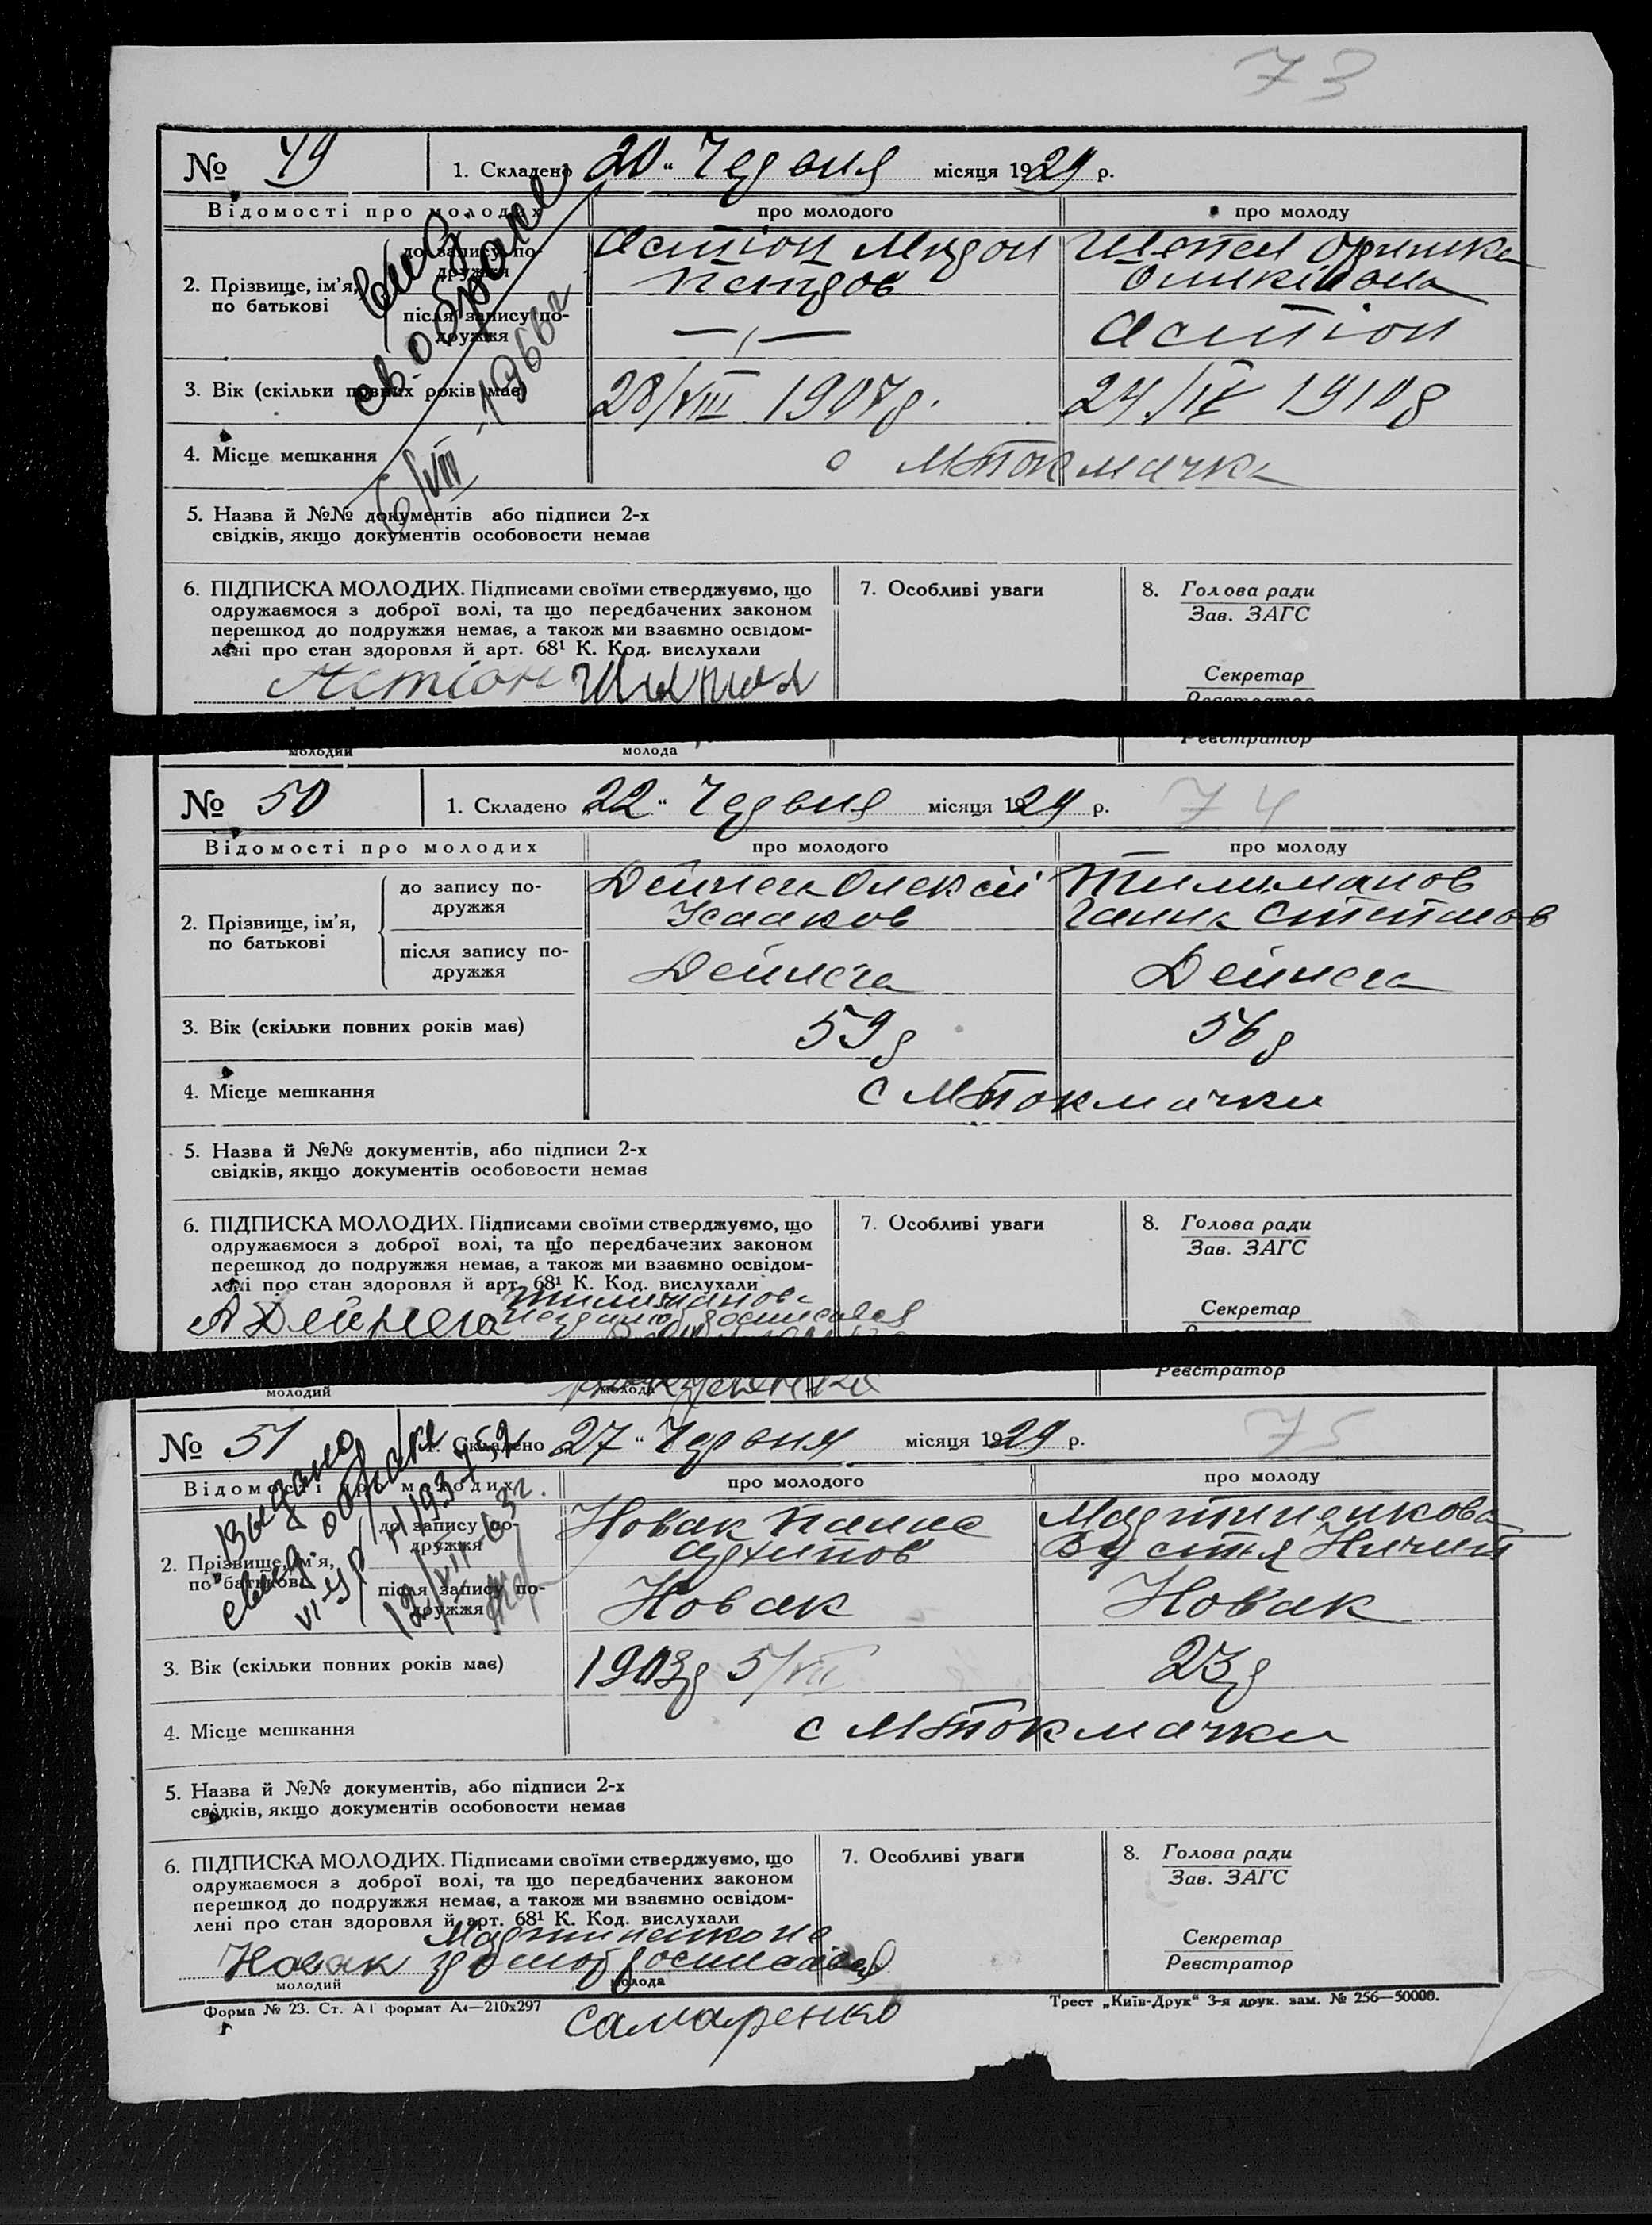 73
№ 49 1. Складено 20 " Червня місяця 1929 р.
Відомості про молодих про молодого про молоду
2. Прізвище, ім'я, по батькові
до запису подружжя Астіон Мирон Петров Шепел Оришка
після запису подружжя —„— Астіон
свид о браке
6/VIII-1966 г
3. Вік (скільки повних років має) 28/VIII 1907 р. 24/IX 1910 р
4. Місце мешкання с МТокмачка
5. Назва й №№ документів або підписи 2-х
свідків, якщо документів особовости немає
6. ПІДПИСКА МОЛОДИХ. Підписами своїми стверджуємо, що
одружаємося з доброї волі, та що передбачених законом
перешкод до подружжя немає, а також ми взаємно освідом-
лені про стан здоровля й арт. 68¹ К. Код. вислухали
Астіон
7. Особливі уваги
8. Голова ради
Зав. ЗАГС
Секретар
Реєстратор
молодий молода
№ 50 1. Складено 22 " Червня місяця 1929 р. 74
Відомості про молодих про молодого про молоду
2. Прізвище, ім'я, по батькові
до запису подружжя Дейнега Олексій Ісааков Тилиманов Ганна Степанов
після запису подружжя Дейнега Дейнега
3. Вік (скільки повних років має) 59 р 56 р
4. Місце мешкання с МТокмачки
5. Назва й №№ документів, або підписи 2-х
свідків, якщо документів особовости немає
6. ПІДПИСКА МОЛОДИХ. Підписами своїми стверджуємо, що
одружаємося з доброї волі, та що передбачених законом
перешкод до подружжя немає, а також ми взаємно освідом-
лені про стан здоровля й арт. 68¹ К. Код. вислухали
Тилиманова
А Дейнега
7. Особливі уваги
8. Голова ради
Зав. ЗАГС
Секретар
Реєстратор
молодий молода
№ 51 1. Складено 27 " Червня місяця 1929 р. 75
Відомості про молодих про молодого про молоду
2. Прізвище, ім'я, по батькові
до запису подружжя Новак Панас Архипов Мартиненкова Вустя Ничип
після запису подружжя Новак Новак
Выдано
свид о браке
3. Вік (скільки повних років має) 1903 р 5/VII 23 р
4. Місце мешкання с МТокмачки
5. Назва й №№ документів, або підписи 2-х
свідків, якщо документів особовости немає
6. ПІДПИСКА МОЛОДИХ. Підписами своїми стверджуємо, що
одружаємося з доброї волі, та що передбачених законом
перешкод до подружжя немає, а також ми взаємно освідом-
лені про стан здоровля й арт. 68¹ К. Код. вислухали
Мартиненко не
Новак
молодий молода
7. Особливі уваги
8. Голова ради
Зав. ЗАГС
Секретар
Реєстратор
Форма № 23. Ст. А1 формат А4—210х297 Трест „Київ-Друк" 3-я друк. зам. № 256—50000.
Самаренко